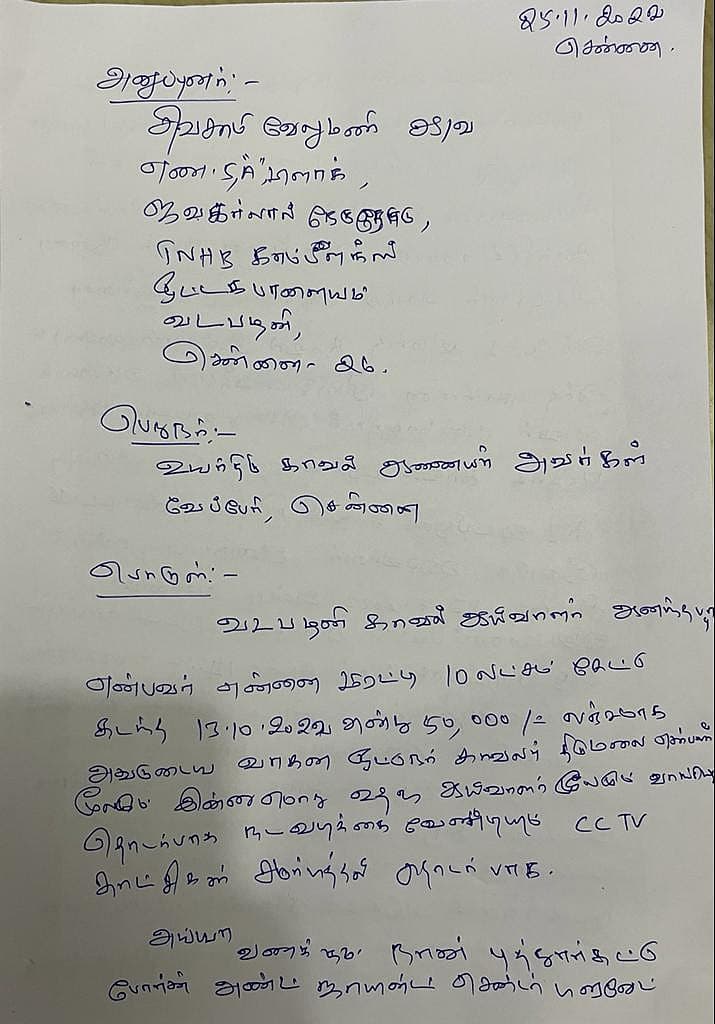 25.11.2022
சென்னை.
அனுப்புனர்:-
சிவகாமி வேலுமணி
எண். 5, "A" பிளாக்,
ஜவகர்லால் நேரு
TNHB காம்ப்ளக்ஸ்
பாளையம்
வடபழனி,
சென்னை- 26.
பெறுநர்:-
உயர்திரு காவல் ஆணையர் அவர்கள்
வேப்பேரி, சென்னை
பொருள்:-
வடபழனி காவல் ஆய்வாளர்
என்பவர் என்னை மிரட்டி 10 லட்சம் கேட்டு
கடந்த 13.10.2022 அன்று 50,000/- லஞ்சமாக
அவருடைய வாகன ஓட்டுநர் காவலர் திருமலை என்பவர்
மூலமும் இன்னுமொரு ஆய்வாளர் மூலமும்
தொடர்பாக நடவடிக்கை வேண்டியும் CCTV
காட்சிகள் சமர்பித்தல் தொடர்பாக.
அய்யா
வணக்கம். நான் புத்தூர்கட்டு
போன்ஸ் அண்ட் ஜாயண்ட் சென்டர் பிரைவேட்